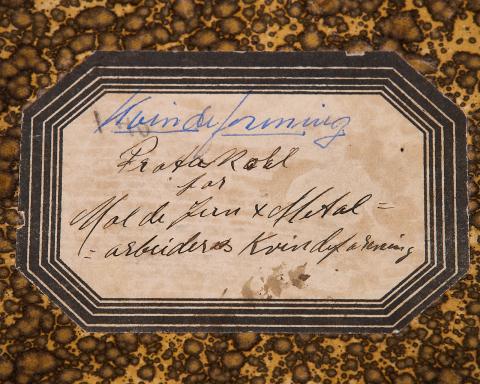 Kvindeforening
Protokoll
for
Molde Jern & Metal=
=arbeideres Kvindeforening